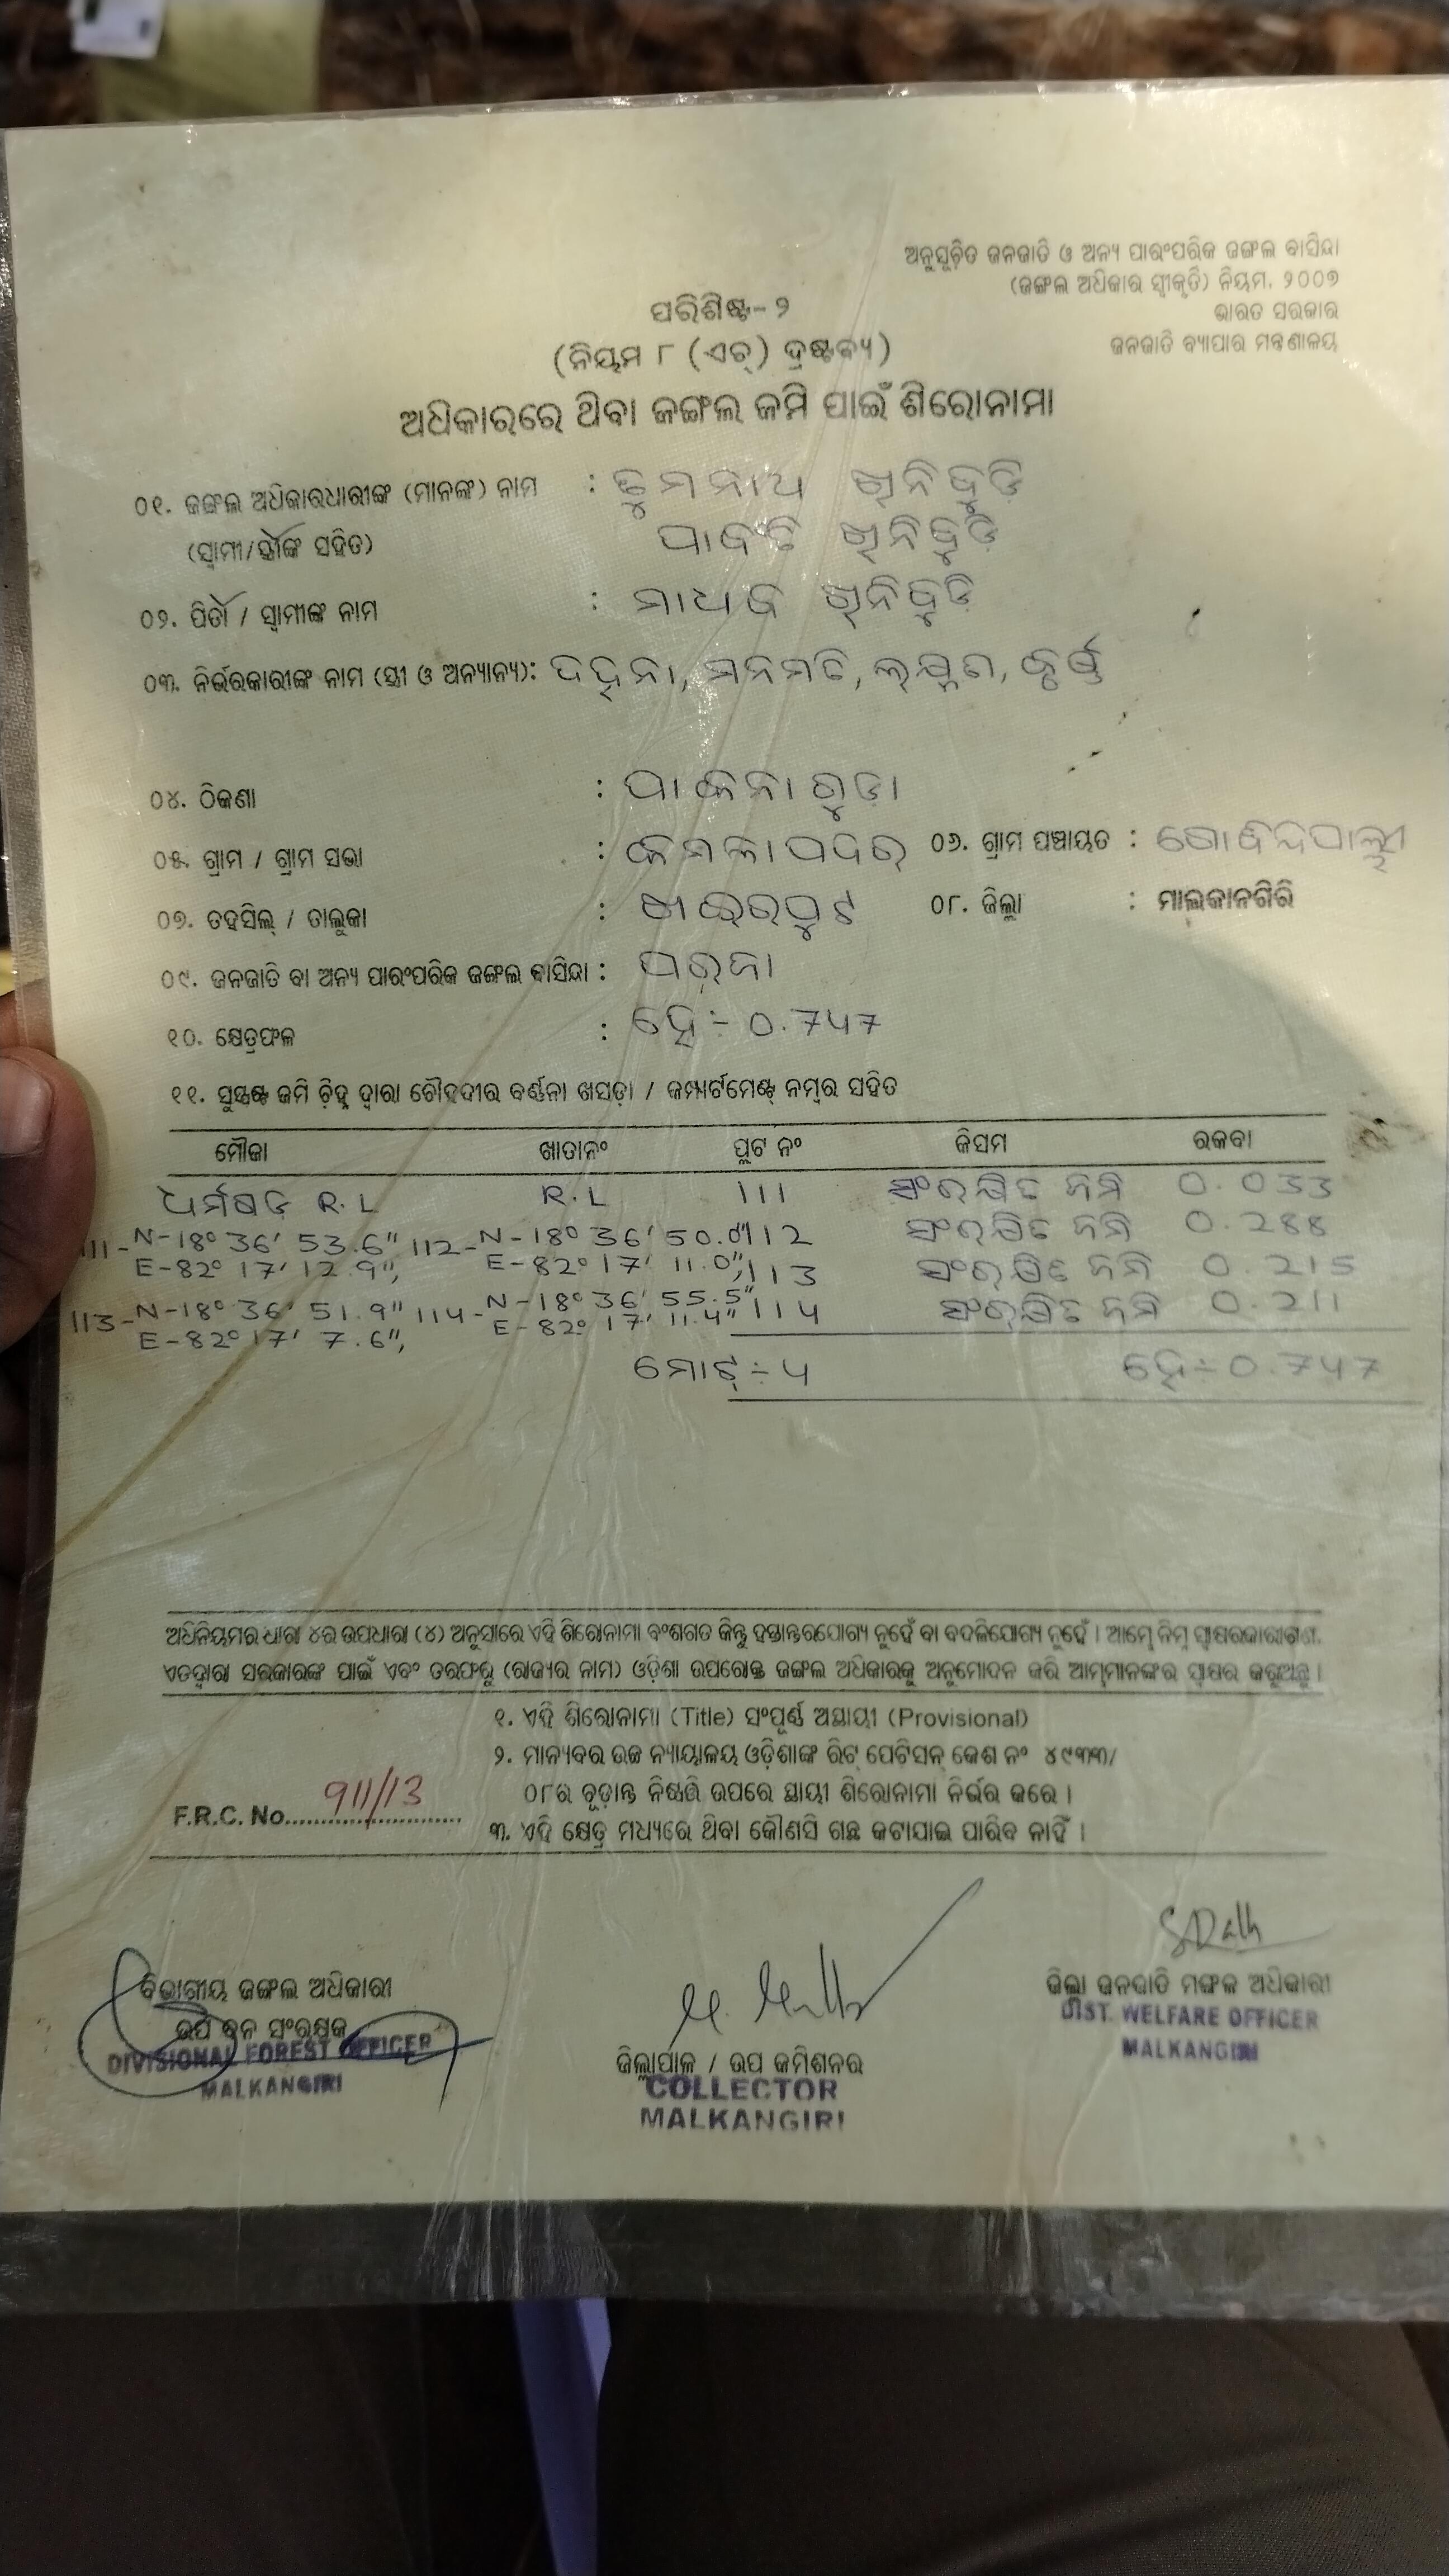 ଅନୁସୂଚିତ ଜନଜାତି ଓ ଅନ୍ୟ ପାରଂପରିକ ଜଙ୍ଗଲ ବାସିନ୍ଦା
(ଜଙ୍ଗଲ ଅଧିକାର ସ୍ୱୀକୃତି) ନିୟମ, ୨୦୦୭
ଭାରତ ସରକାର
ଜନଜାତି ବ୍ୟାପାର ମନ୍ତ୍ରଣାଳୟ
ପରିଶିଷ୍ଟ- ୨
(ନିୟମ ୮ (ଏଚ୍) ଦ୍ରଷ୍ଟବ୍ୟ)
ଅଧିକାରରେ ଥିବା ଜଙ୍ଗଲ ଜମି ପାଇଁ ଶିରୋନାମା
୦୧. ଜଙ୍ଗଲ ଅଧିକାରଧାରୀଙ୍କ (ମାନଙ୍କ) ନାମ : ଡୁମନାଥ ଖିନିବୁଡ଼ି
(ସ୍ୱାମୀ/ସ୍ତ୍ରୀଙ୍କ ସହିତ) ପାର୍ବତି ଖିନିବୁଡ଼ି
୦୨. ପିତା / ସ୍ୱାମୀଙ୍କ ନାମ : ମାଧବ ଖିନିବୁଡ଼ି
୦୩. ନିର୍ଭରକାରୀଙ୍କ ନାମ (ସ୍ତ୍ରୀ ଓ ଅନ୍ୟାନ୍ୟ): ମନମତି,
୦୪. ଠିକଣା : ପାକନାଗୁଡ଼ା
୦୫. ଗ୍ରାମ / ଗ୍ରାମ ସଭା : କମଳାପଦର ୦୬. ଗ୍ରାମ ପଞ୍ଚାୟତ : ଗୋବିନ୍ଦପାଲ୍ଲୀ
୦୭. ତହସିଲ୍ / ତାଲୁକା : ଖଇରପୁଟ ୦୮. ଜିଲ୍ଲା : ମାଲକାନଗିରି
୦୯. ଜନଜାତି ବା ଅନ୍ୟ ପାରଂପରିକ ଜଙ୍ଗଲ ବାସିନ୍ଦା : ପରଜା
୧୦. କ୍ଷେତ୍ରଫଳ : ହେ÷ 0.747
୧୧. ସୁସ୍ପଷ୍ଟ ଜମି ଚିହ୍ନ ଦ୍ୱାରା ଚୌହଦୀର ବର୍ଣ୍ଣନା ଖସଡ଼ା / କମ୍ପାର୍ଟମେଣ୍ଟ୍ ନମ୍ବର ସହିତ
ମୌଜା ଖାତାନଂ ପ୍ଲଟ ନଂ କିସମ ରକବା
ଧର୍ମଷଡ଼ R.L R.L 111 ସଂରକ୍ଷିତ ଜମି 0.033
111-N-18° 36' 53.6" 112-N-18° 36' 50.0" 112 ସଂରକ୍ଷିତ ଜମି 0.288
E-82° 17' 12.9", E-82° 17' 11.0", 113 ସଂରକ୍ଷିତ ଜମି 0.215
113-N-18° 36' 51.9" 114-N-18° 36' 55.5" 114 ସଂରକ୍ଷିତ ଜମି 0.211
E-82° 17' 7.6", E-82° 17' 11.4"
ମୋଟ୍÷ 4 ହେ÷0.747
ଅଧିନିୟମର ଧାରା ୪ର ଉପଧାରା (୪) ଅନୁସାରେ ଏହି ଶିରୋନାମା ବଂଶଗତ କିନ୍ତୁ ହସ୍ତାନ୍ତରଯୋଗ୍ୟ ନୁହେଁ ବା ବଦଳିଯୋଗ୍ୟ ନୁହେଁ । ଆମ୍ଭେ ନିମ୍ନ ସ୍ୱାକ୍ଷରକାରୀଗଣ,
ଏତଦ୍ୱାରା ସରକାରଙ୍କ ପାଇଁ ଏବଂ ତରଫରୁ (ରାଜ୍ୟର ନାମ) ଓଡ଼ିଶା ଉପରୋକ୍ତ ଜଙ୍ଗଲ ଅଧିକାରକୁ ଅନୁମୋଦନ କରି ଆମ୍ଭମାନଙ୍କର ସ୍ୱାକ୍ଷର କରୁଅଛୁ ।
୧. ଏହି ଶିରୋନାମା (Title) ସଂପୂର୍ଣ୍ଣ ଅସ୍ଥାୟୀ (Provisional)
୨. ମାନ୍ୟବର ଉଚ୍ଚ ନ୍ୟାୟାଳୟ ଓଡ଼ିଶାଙ୍କ ରିଟ୍ ପେଟିସନ୍ କେଶ ନଂ ୪୯୩୩/
୦୮ର ଚୂଡ଼ାନ୍ତ ନିଷ୍ପତ୍ତି ଉପରେ ସ୍ଥାୟୀ ଶିରୋନାମା ନିର୍ଭର କରେ ।
F.R.C. No. 911/13
୩. ଏହି କ୍ଷେତ୍ର ମଧ୍ୟରେ ଥିବା କୌଣସି ଗଛ କଟାଯାଇ ପାରିବ ନାହିଁ ।
ବିଭାଗୀୟ ଜଙ୍ଗଲ ଅଧିକାରୀ
ଉପ ବନ ସଂରକ୍ଷକ
DIVISIONAL FOREST OFFICER
MALKANGIRI
ଜିଲ୍ଲାପାଳ / ଉପ କମିଶନର
COLLECTOR
MALKANGIRI
ଜିଲ୍ଲା ଜନଜାତି ମଙ୍ଗଳ ଅଧିକାରୀ
DIST. WELFARE OFFICER
MALKANGIRI